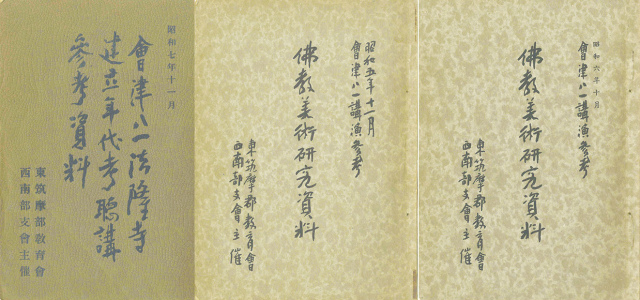 昭和七年十一月
會津八一法隆寺
建立年代考聴講
參考資料
東筑摩部教育會
西南部支會主催
昭和五年十一月
會津八一講演參考
佛教美術研究資料
東筑摩郡教育會
西南部支會主催
昭和六年十月
會津八一講演參考
佛教美術研究資料
東筑摩郡教育會
西南部支會主催